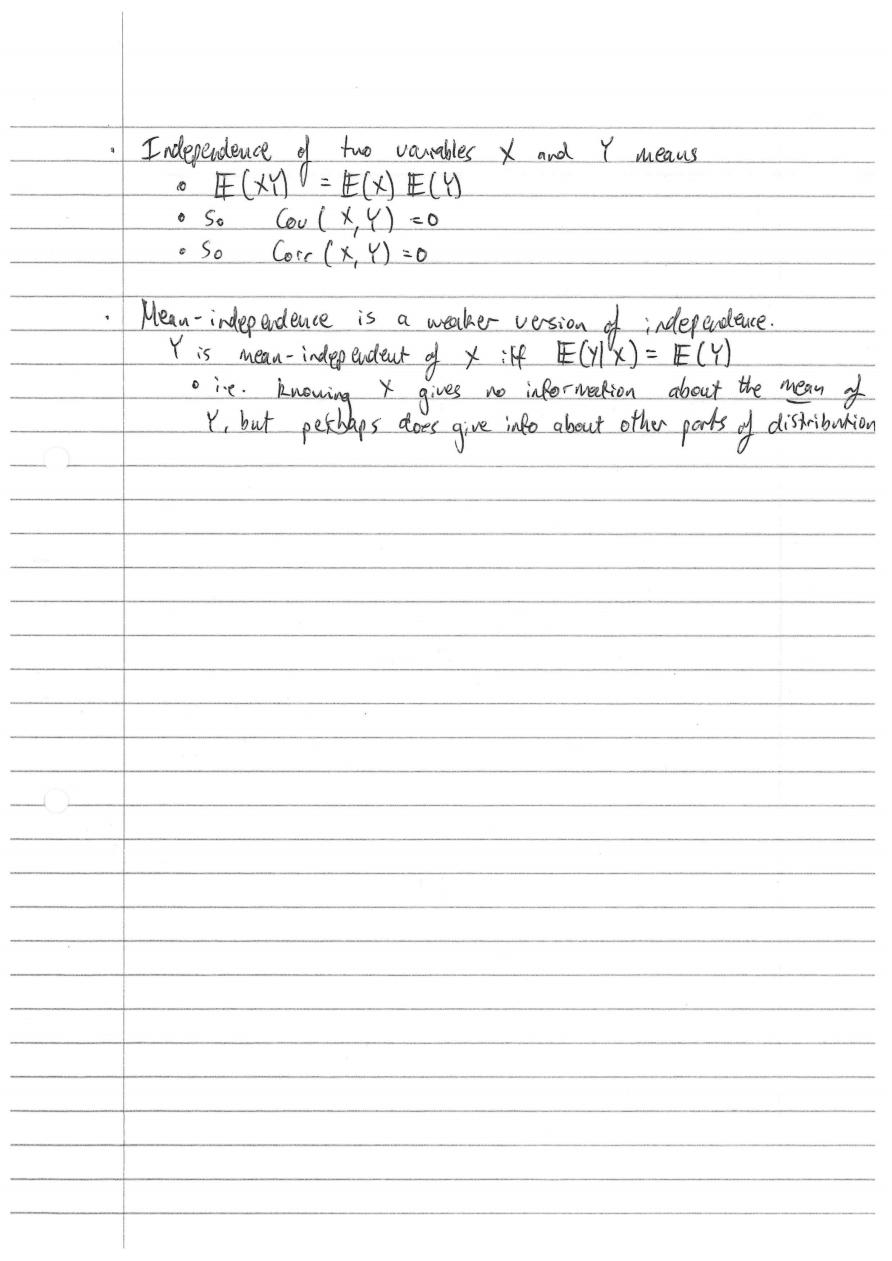 · Independence of two variables X and Y means
∘ 𝔼(XY) = 𝔼(X) 𝔼(Y)
∘ So Cov(X, Y) = 0
∘ So Corr(X, Y) = 0
· Mean-independence is a weaker version of independence.
Y is mean-independent of X iff 𝔼(Y|X) = 𝔼(Y)
∘ i.e. knowing X gives no information about the mean of
Y, but perhaps does give info about other parts of distribution